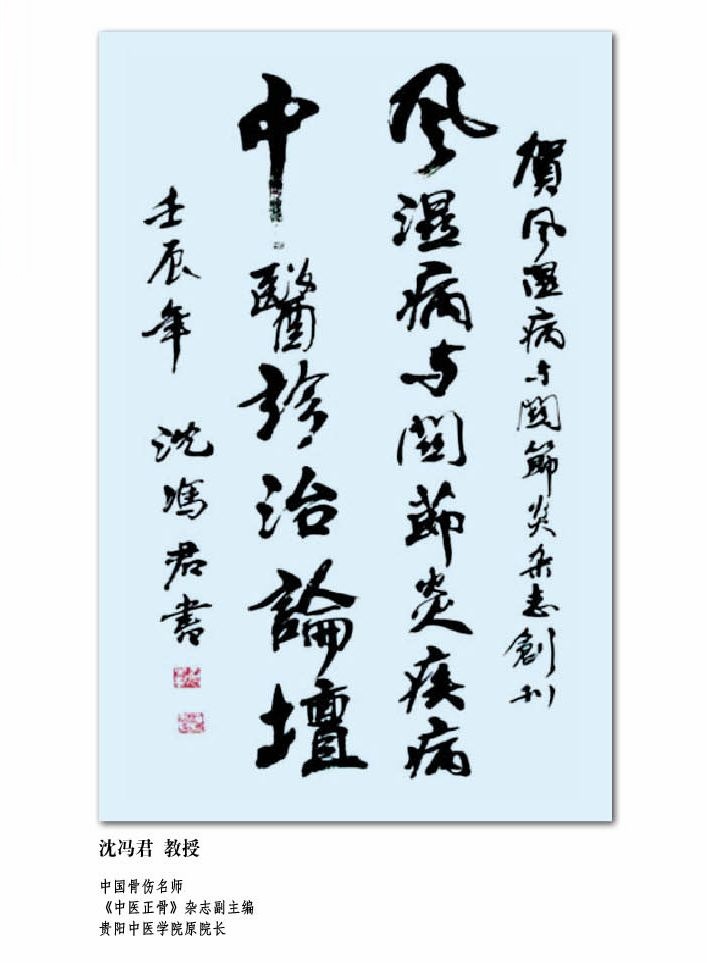 賀风湿病与関節炎杂志創刊
风湿病与関節炎疾病
中醫診治論壇
壬辰年 沈馮君書
沈冯君 教授
中国骨伤名师
《中医正骨》杂志副主编
贵阳中医学院原院长